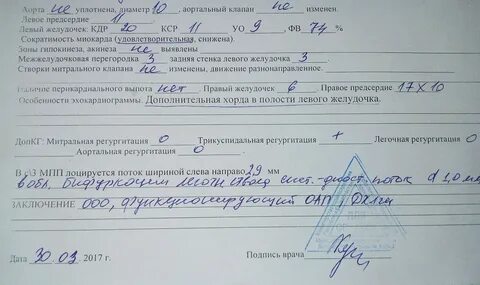 Аорта не уплотнена, диаметр 10, аортальный клапан не изменен.
Левое предсердие 11
Левый желудочек: КДР 20 КСР 11 УО 9 ФВ 74 %
Сократимость миокарда (удовлетворительная, снижена).
Зоны гипокинеза, акинеза не выявлены
Межжелудочковая перегородка 3 задняя стенка левого желудочка 3.
Створки митрального клапана не изменены, движение разнонаправленное.
Наличие перикардиального выпота нет. Правый желудочек 6 Правое предсердие 17х10
Особенности эхокардиограммы. Дополнительная хорда в полости левого желудочка.
ДопКГ: Митральная регургитация 0 Трикуспидальная регургитация + Легочная регургитация 0
Аортальная регургитация 0
В с\З МПП лоцируется поток шириной слева направо 2,9 мм
в обл. бифуркации легочн ствола сист.-диаст. поток d 1,0 мм
ЗАКЛЮЧЕНИЕ ООО, функционирующий ОАП, ДХЛЖ
Дата 30.03. 2017 г. Подпись врача